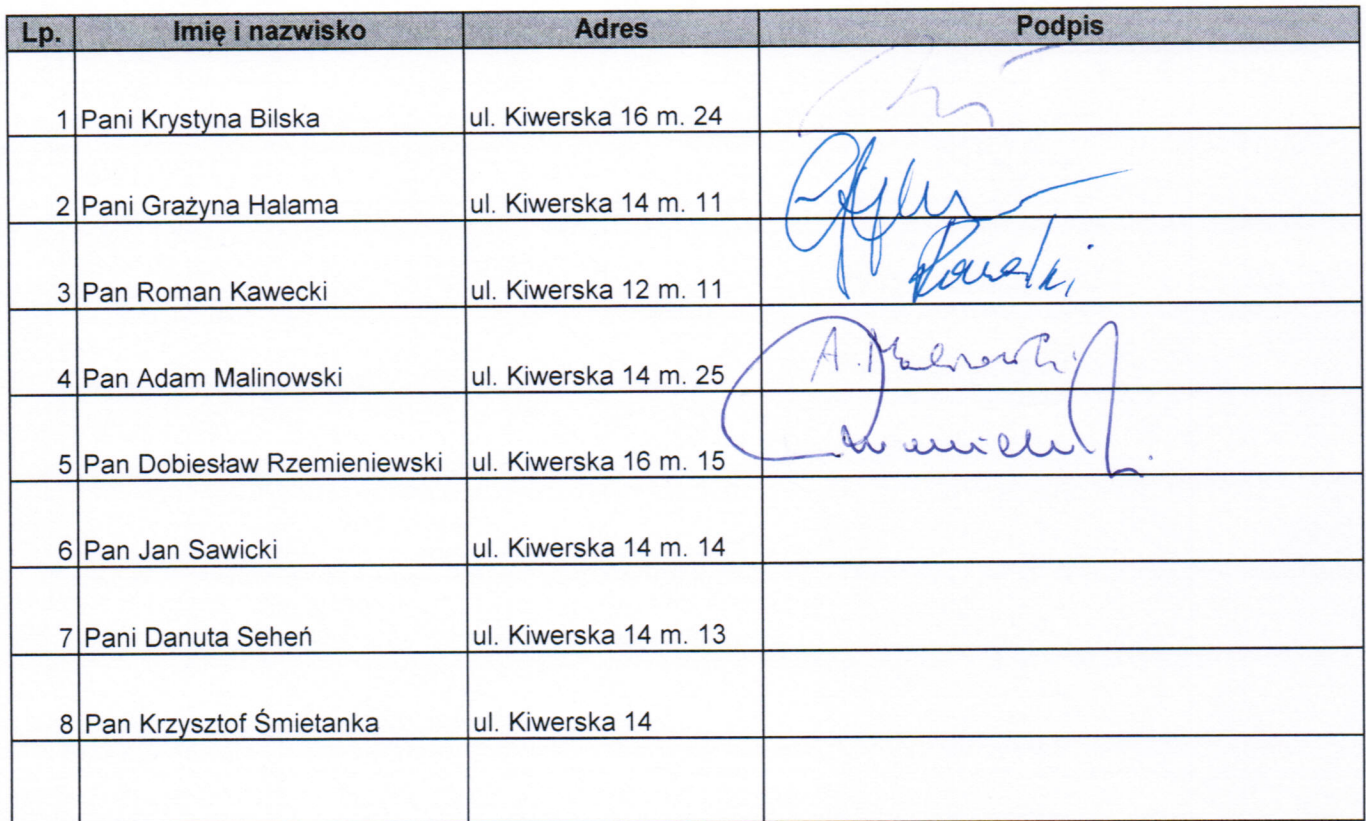 Lp. Imię i nazwisko Adres Podpis
1 Pani Krystyna Bilska ul. Kiwerska 16 m. 24
2 Pani Grażyna Halama ul. Kiwerska 14 m. 11
3 Pan Roman Kawecki ul. Kiwerska 12 m. 11
4 Pan Adam Malinowski ul. Kiwerska 14 m. 25 A. Malinowski
5 Pan Dobiesław Rzemieniewski ul. Kiwerska 16 m. 15
6 Pan Jan Sawicki ul. Kiwerska 14 m. 14
7 Pani Danuta Seheń ul. Kiwerska 14 m. 13
8 Pan Krzysztof Śmietanka ul. Kiwerska 14